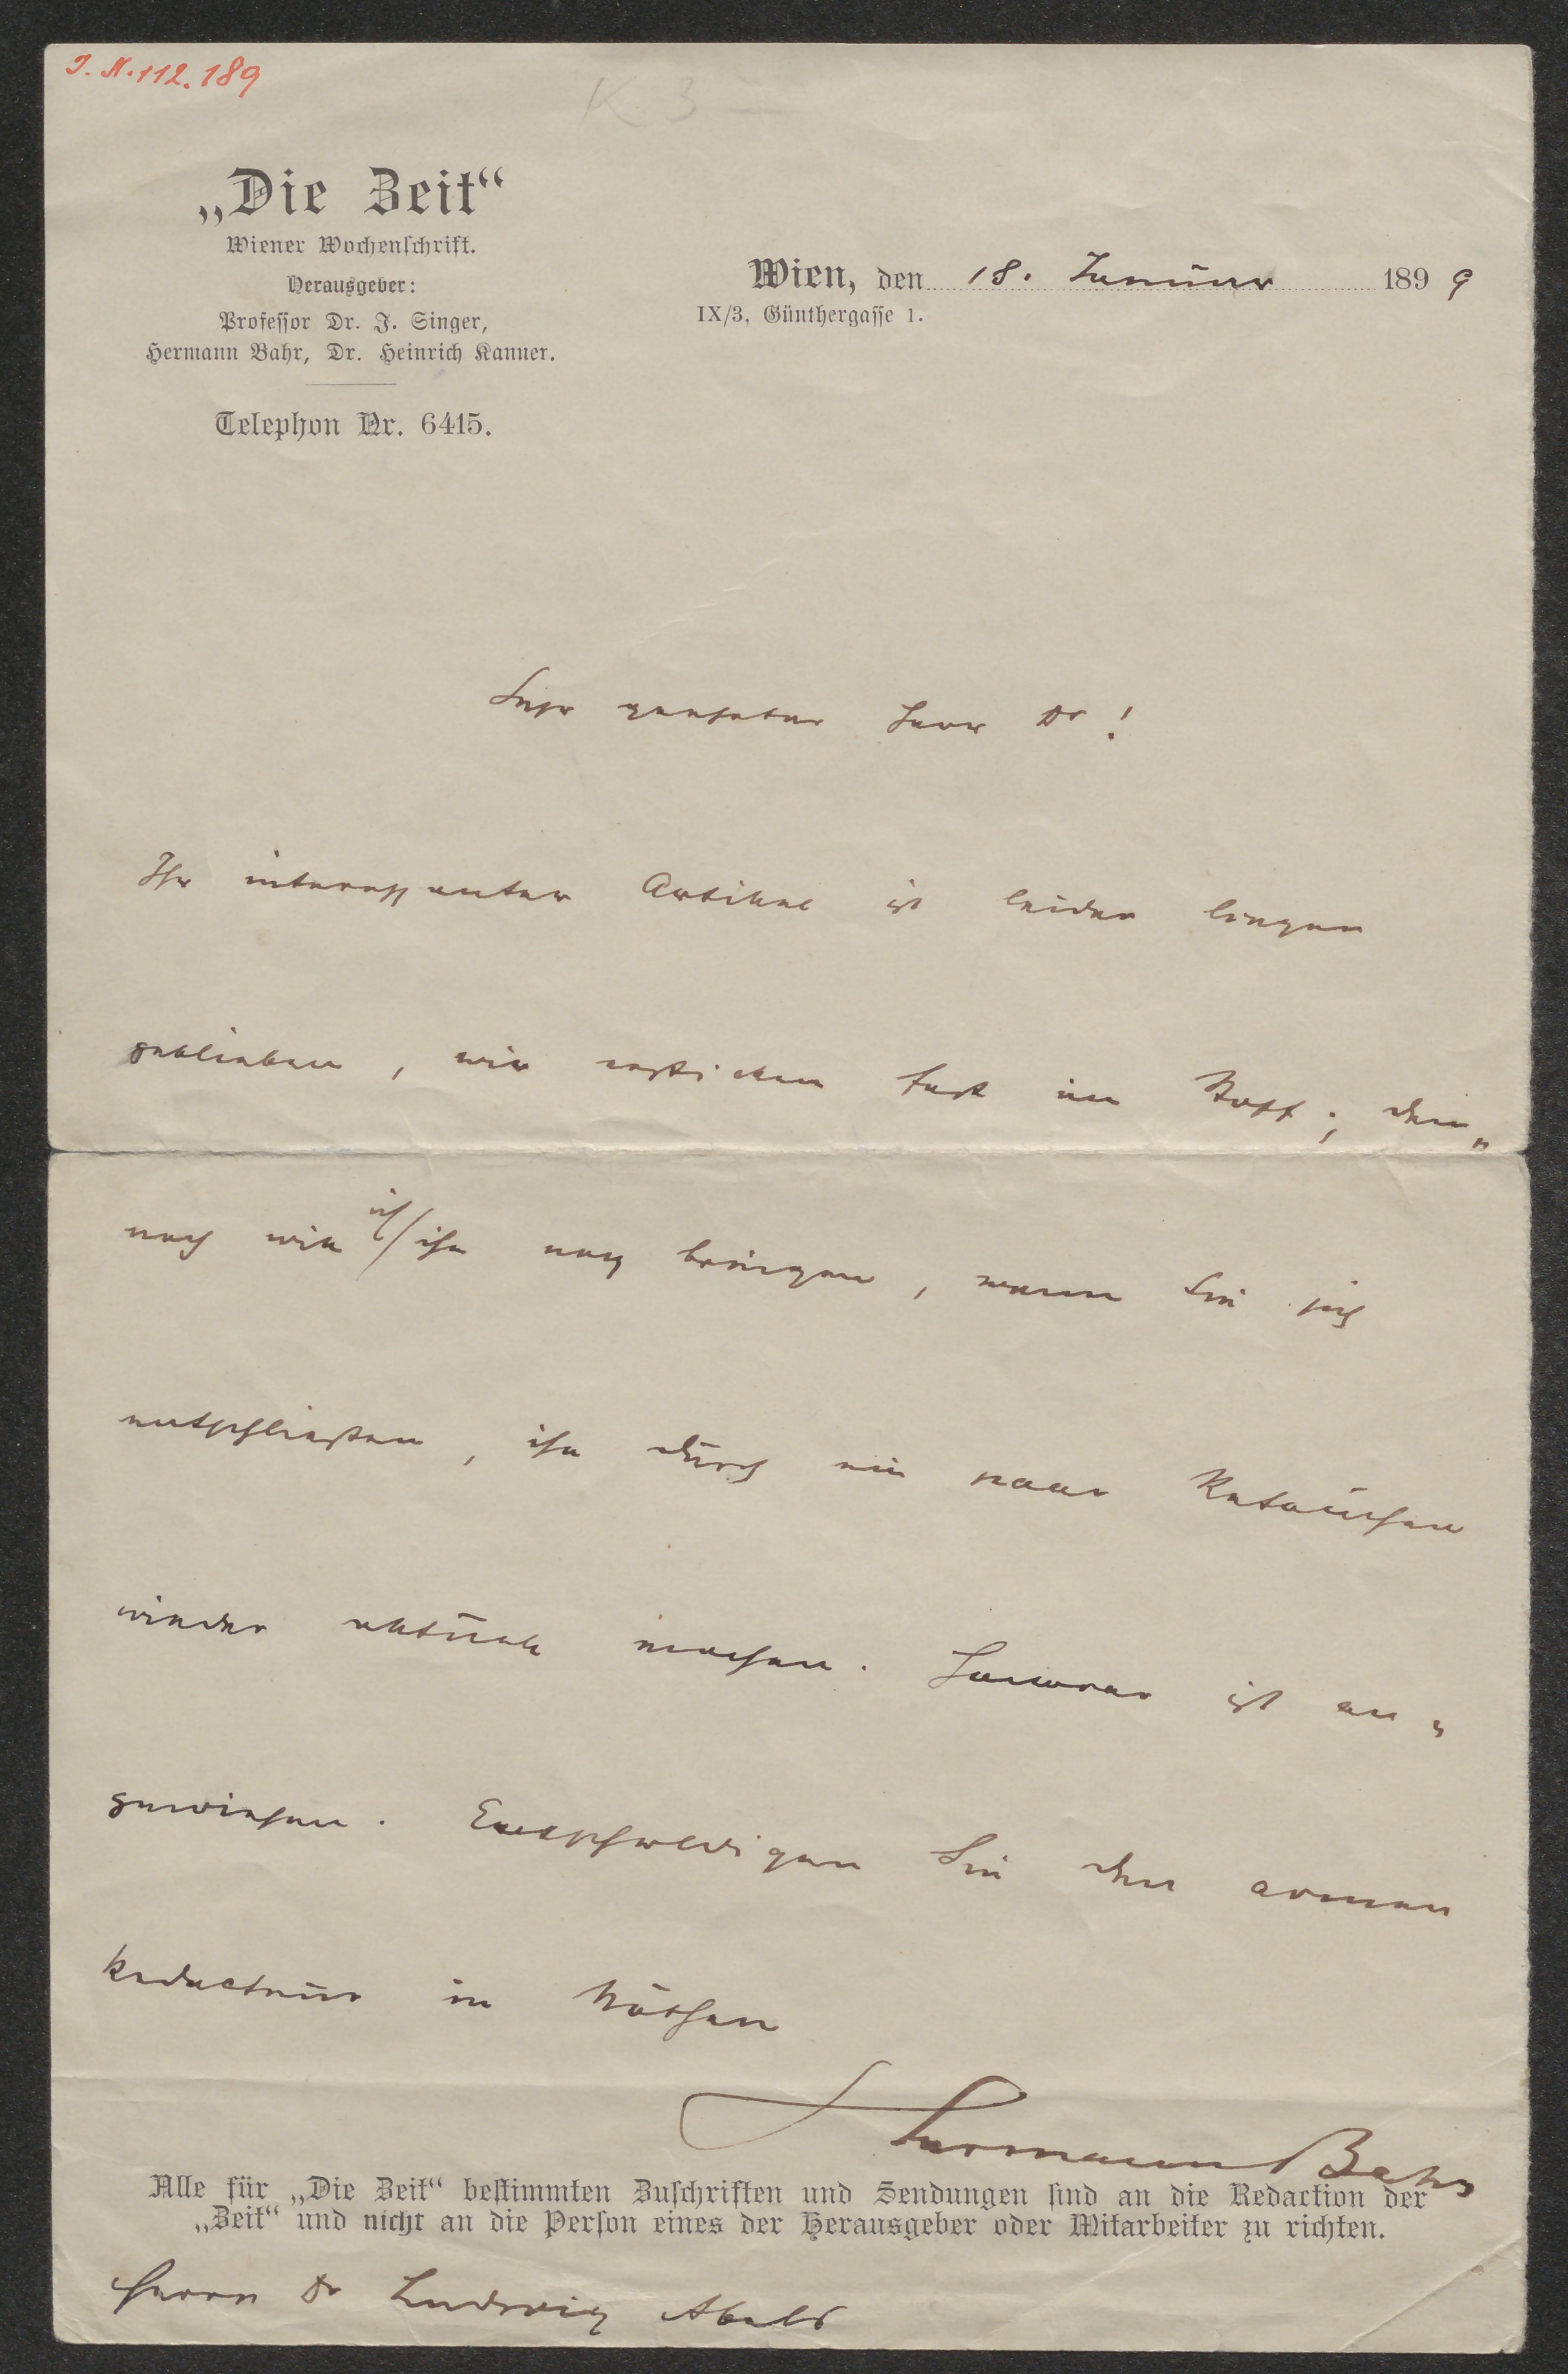 J. N. 112.189
K 3
„Die Zeit“
Wiener Wochenschrift.
Herausgeber:
Professor Dr. J. Singer,
Hermann Bahr, Dr. Heinrich Kanner.
Telephon Nr. 6415.
Wien, den 18. Januar 1899
IX/3, Günthergasse 1.
Sehr geehrter Herr Dr!
Ihr interessanter Artikel ist leider liegen
geblieben, wir ersticken fast im Stoff; den„
noch will ich ihn noch bringen, wenn Sie sich
entschließen, ihn durch ein paar Retouchen
wieder aktuell machen. Honorar ist an„
gewiesen. Entschuldigen Sie den armen
Redacteur in Nöthen
Hermann Bahr
Alle für „Die Zeit“ bestimmten Zuschriften und Sendungen sind an die Redaction der
„Zeit“ und nicht an die Person eines der Herausgeber oder Mitarbeiter zu richten.
Herrn Dr Ludwig Abels